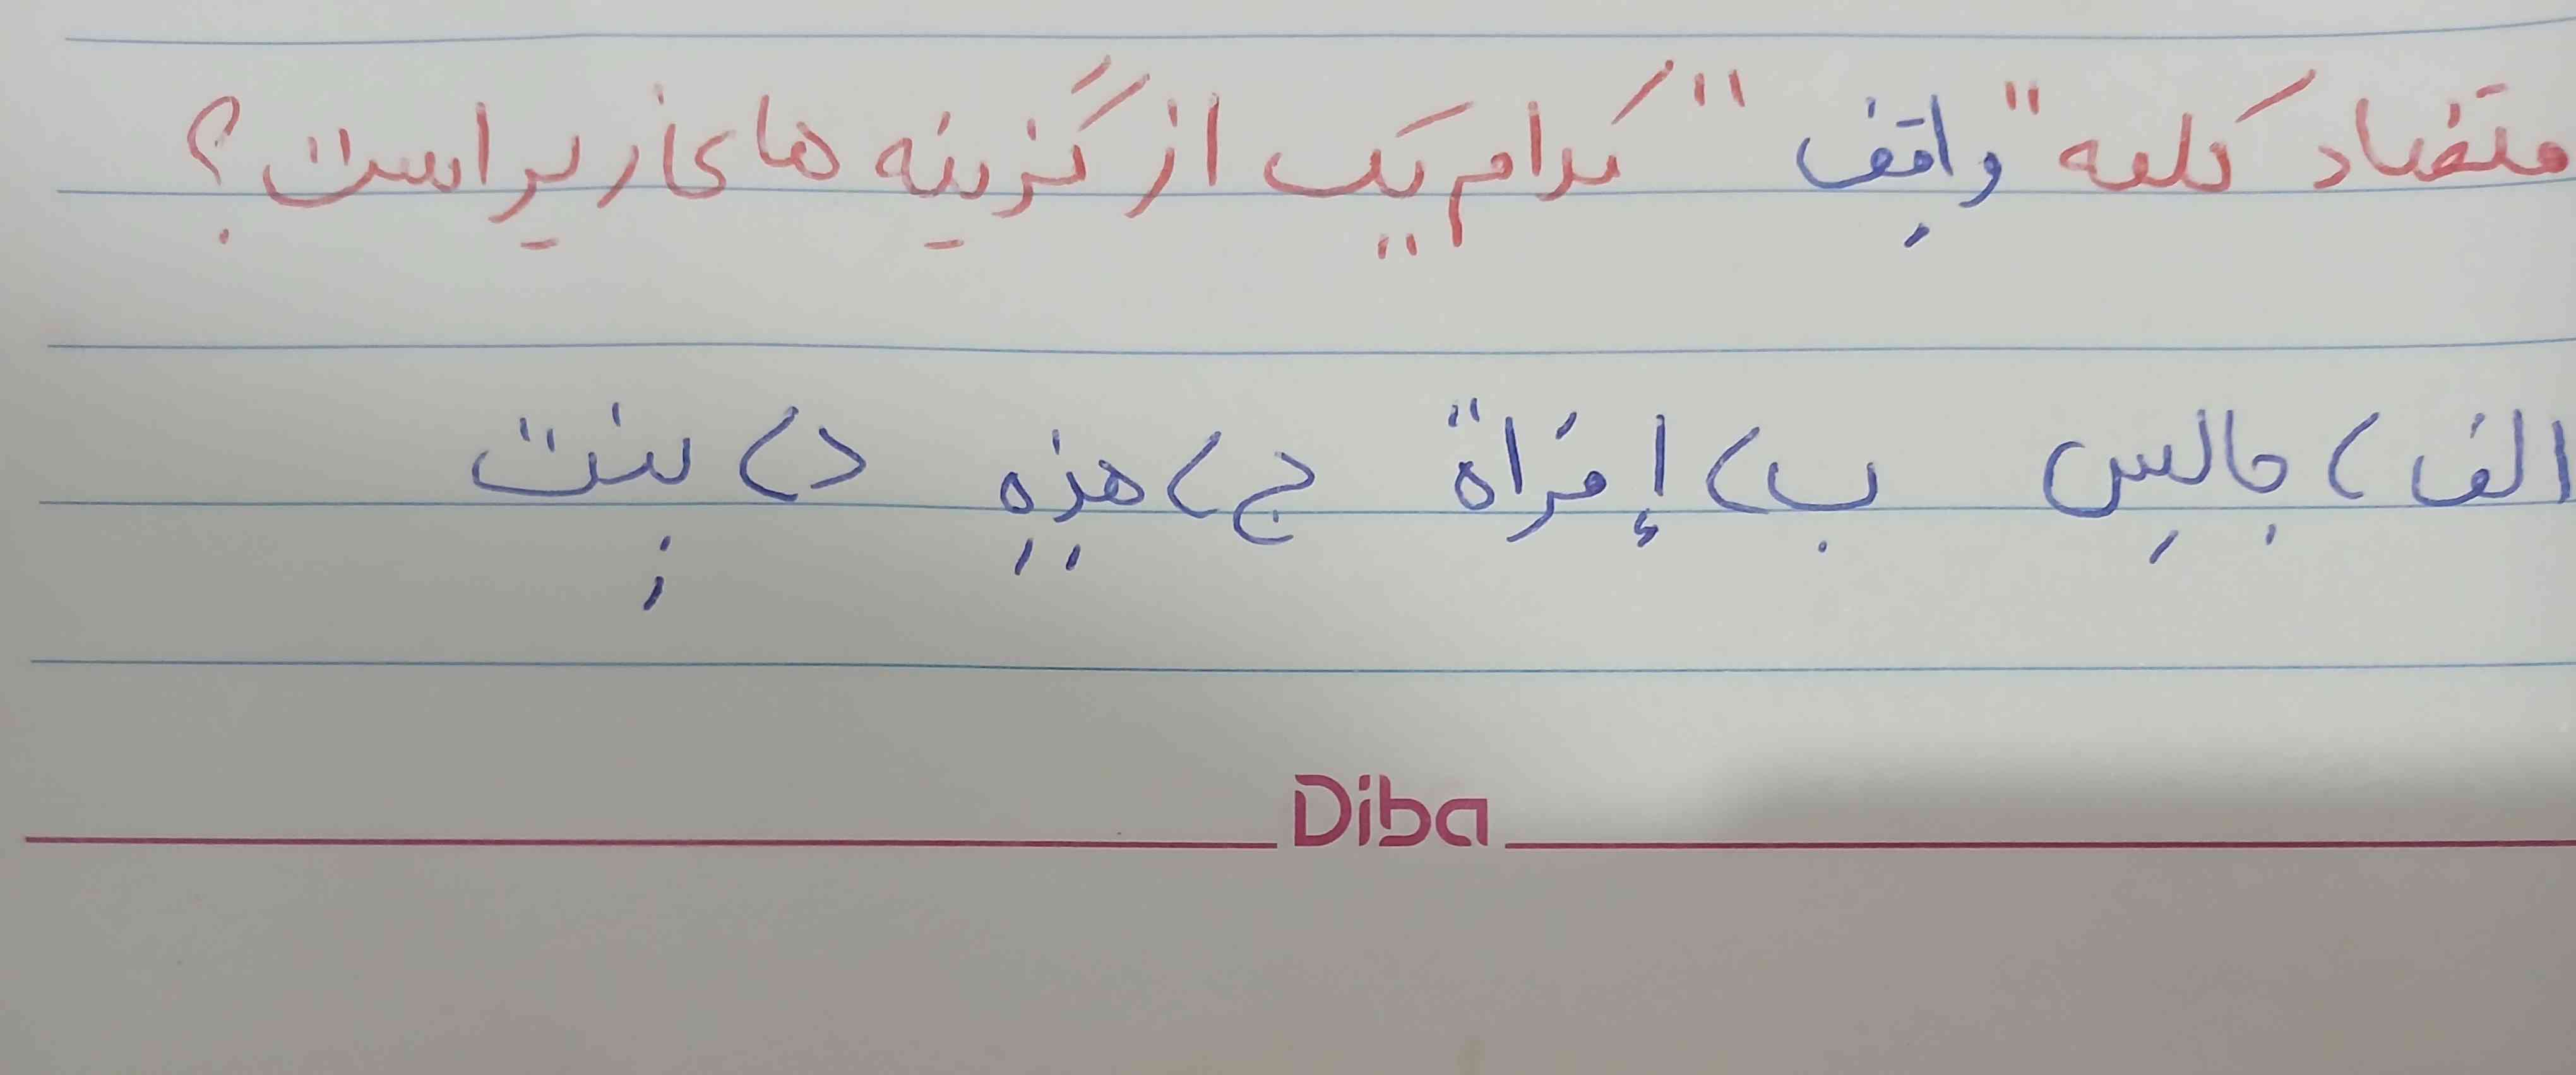 متضاد کلمه "واقِف" کدام یک از گزینه های زیر است؟
الف) جالِس ب) إمَرأة ج) هذِهِ د) بِنت
Diba